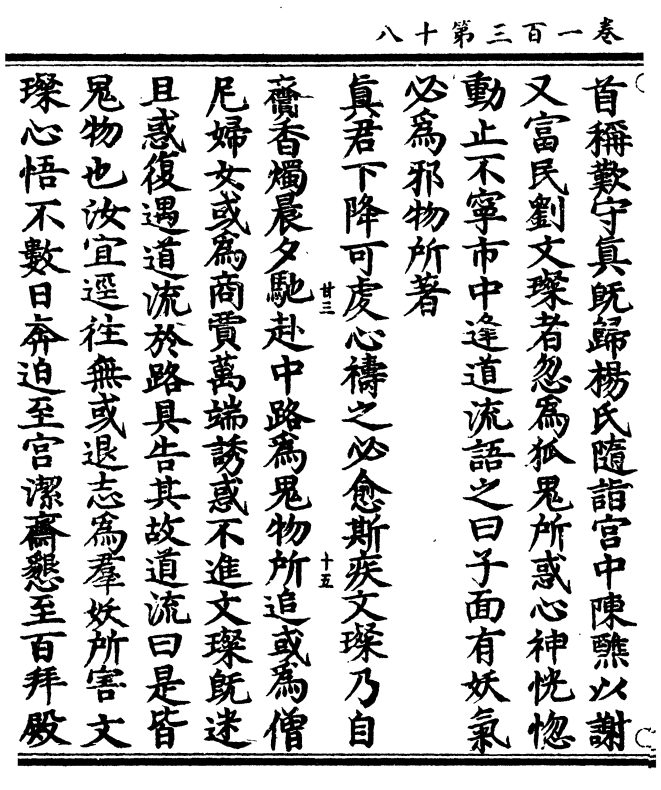 卷一百三第十八
首稱歎守真旣歸楊氏隨詣宮中陳醮以謝
又富民劉文璨者忽為狐鬼所惑心神恍惚
動止不寧市中逢道流語之曰子面有妖氣
必為邪物所著
真君下降可虔心禱之必愈斯疾文璨乃自
廿三
十五
齎香燭晨夕馳赴中路為鬼物所追或為僧
尼婦女或為商賈萬端誘惑不進文璨旣迷
且惑復遇道流於路具告其故道流曰是皆
鬼物也汝宜逕往無或退志為羣妖所害文
璨心悟不數日奔迫至宮潔齋懇至百拜殿